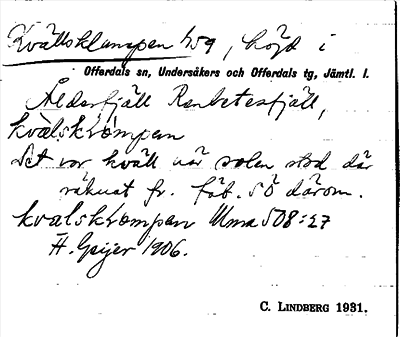 Kvällsklumpen 459, höjd i
Offerdals sn, Undersåkers och Offerdals tg, Jämtl. l.
Ålderfjäll Renbetesfjäll,
kvälskrömpen
Det var kväll när solen stod där
räknat fr. fäb. SÖ därom.
kvalskrompen Uma 508:27
H. Geijer 1906.
C. LINDBERG 1931.